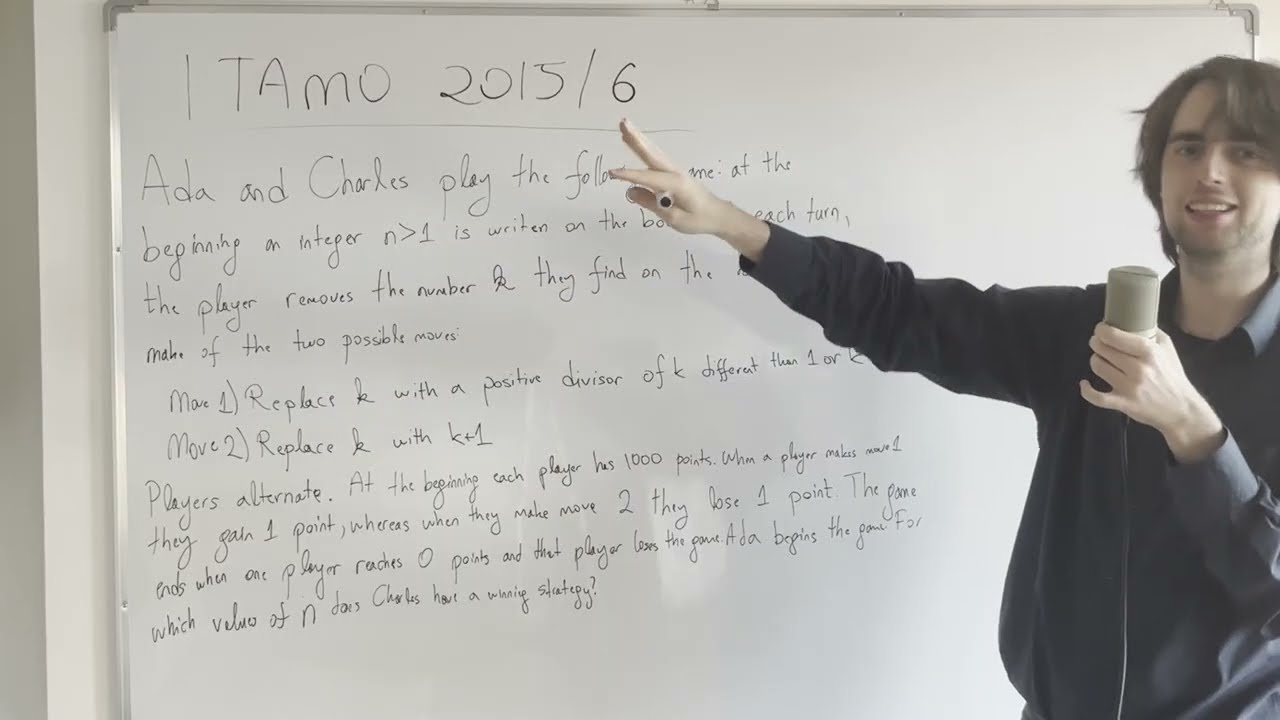 ITAMO 2015/6
Ada and Charles play the at the
beginning an integer n>1 is writen on the each turn,
the player removes the number k they find on the
make of the two possible moves:
Move 1) Replace k with a positive divisor of k different than 1 or k
Move 2) Replace k with k+1
Players alternate. At the beginning each player has 1000 points. When a player makes move 1
they gain 1 point, whereas when they make move 2 they lose 1 point. The game
ends when one player reaches 0 points and that player loses the game. Ada begins the game. For
which values of n does Charles have a winning strategy?